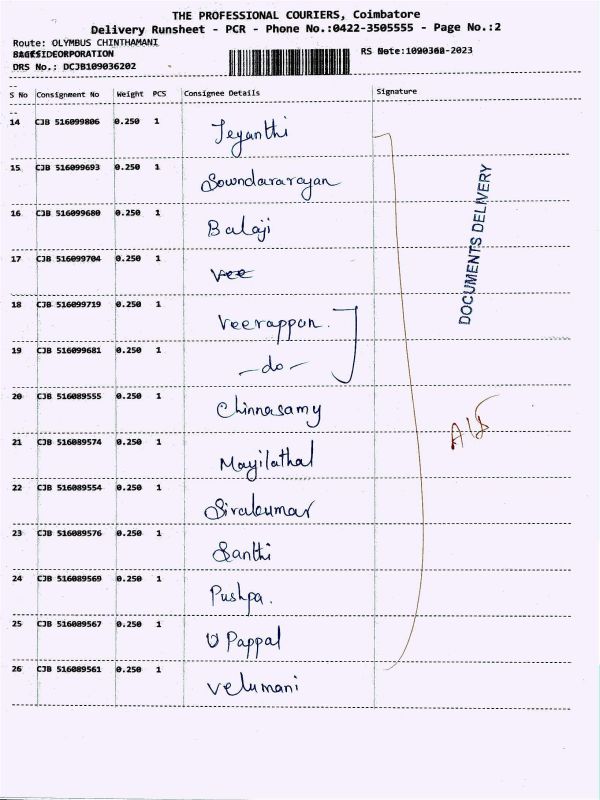 THE PROFESSIONAL COURIERS, Coimbatore
Delivery Runsheet - PCR - Phone No.:0422-3505555 - Page No.:2
Route: OLYMBUS CHINTHAMANI
RS
DRS No.: DCJB109036202
S No Consignment No Weight PCS Consignee Details Signature
14 CJB 516099806 0.250 1 Jeyanthi
15 CJB 516099693 0.250 1 Sowndararayan
16 CJB 516099680 0.250 1 Balaji
17 CJB 516099704 0.250 1 Vee
18 CJB 516099719 0.250 1 Veerappan.
19 CJB 516099681 0.250 1 - do -
20 CJB 516089555 0.250 1 Chinnasamy
21 CJB 516089574 0.250 1 Mayilathal
22 CJB 516089554 0.250 1 Sivakumar
23 CJB 516089576 0.250 1 Santhi
24 CJB 516089569 0.250 1 Pushpa.
25 CJB 516089567 0.250 1 Pappal
26 CJB 516089561 0.250 1 Velumani
DOCUMENTS DELIVERY